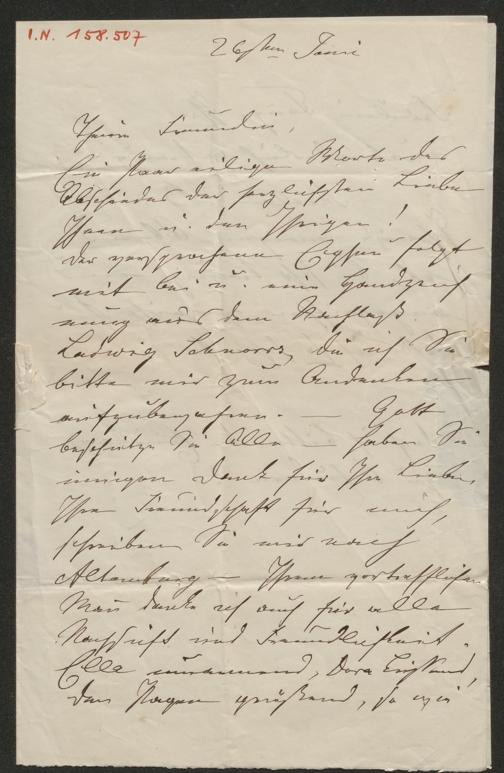 I.N. 158.507
26sten Juni
Theure Freundin,
Ein Paar eilige Worte des
Abschiedes der herzlichsten Liebe
Ihnen u. den Ihrigen!
der versprochene folgt
mit bei u. eine Handzeich
nung aus dem Nachlaß
Ludwig Schnorrs, die ich Sie
bitte mir zum Andenken
aufzubewahren. — Gott
beschütze Sie Alle — haben Sie
innigen Dank für Ihre Liebe,
Ihre Freundschaft für mich,
schreiben Sie mir nach
Altenburg — Ihrem vortrefflichen
Mann danke ich auch für alle
Nachsicht und Freundlichkeit.
Ella umarmend, Dora küssend,
den Pagen grüßend, so wie